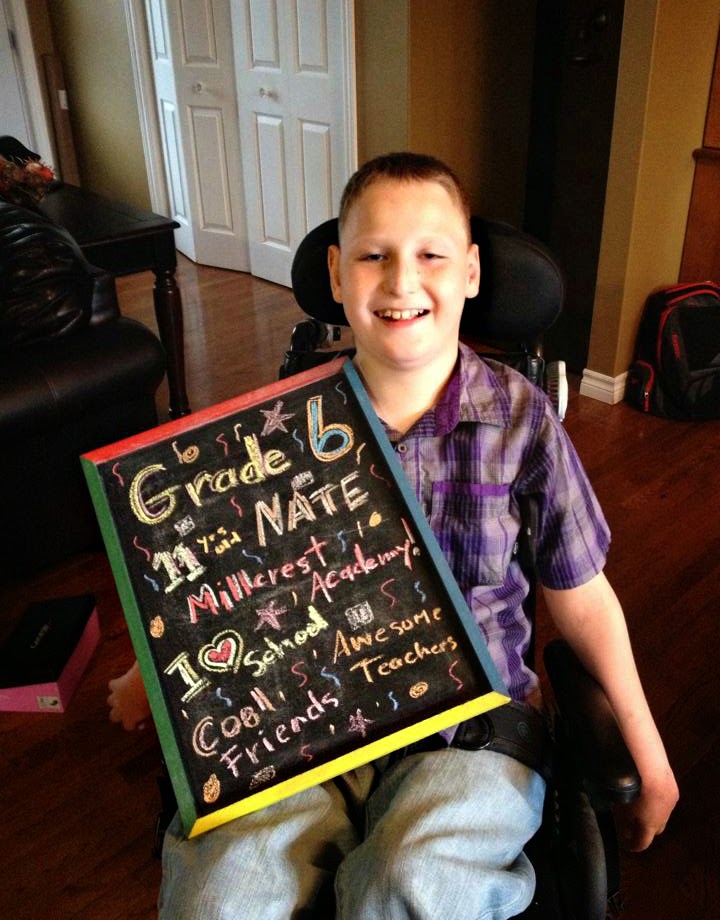 Grade 6
11 yrs old NATE
Millcrest Academy!
I School
Awesome Teachers
Cool Friends